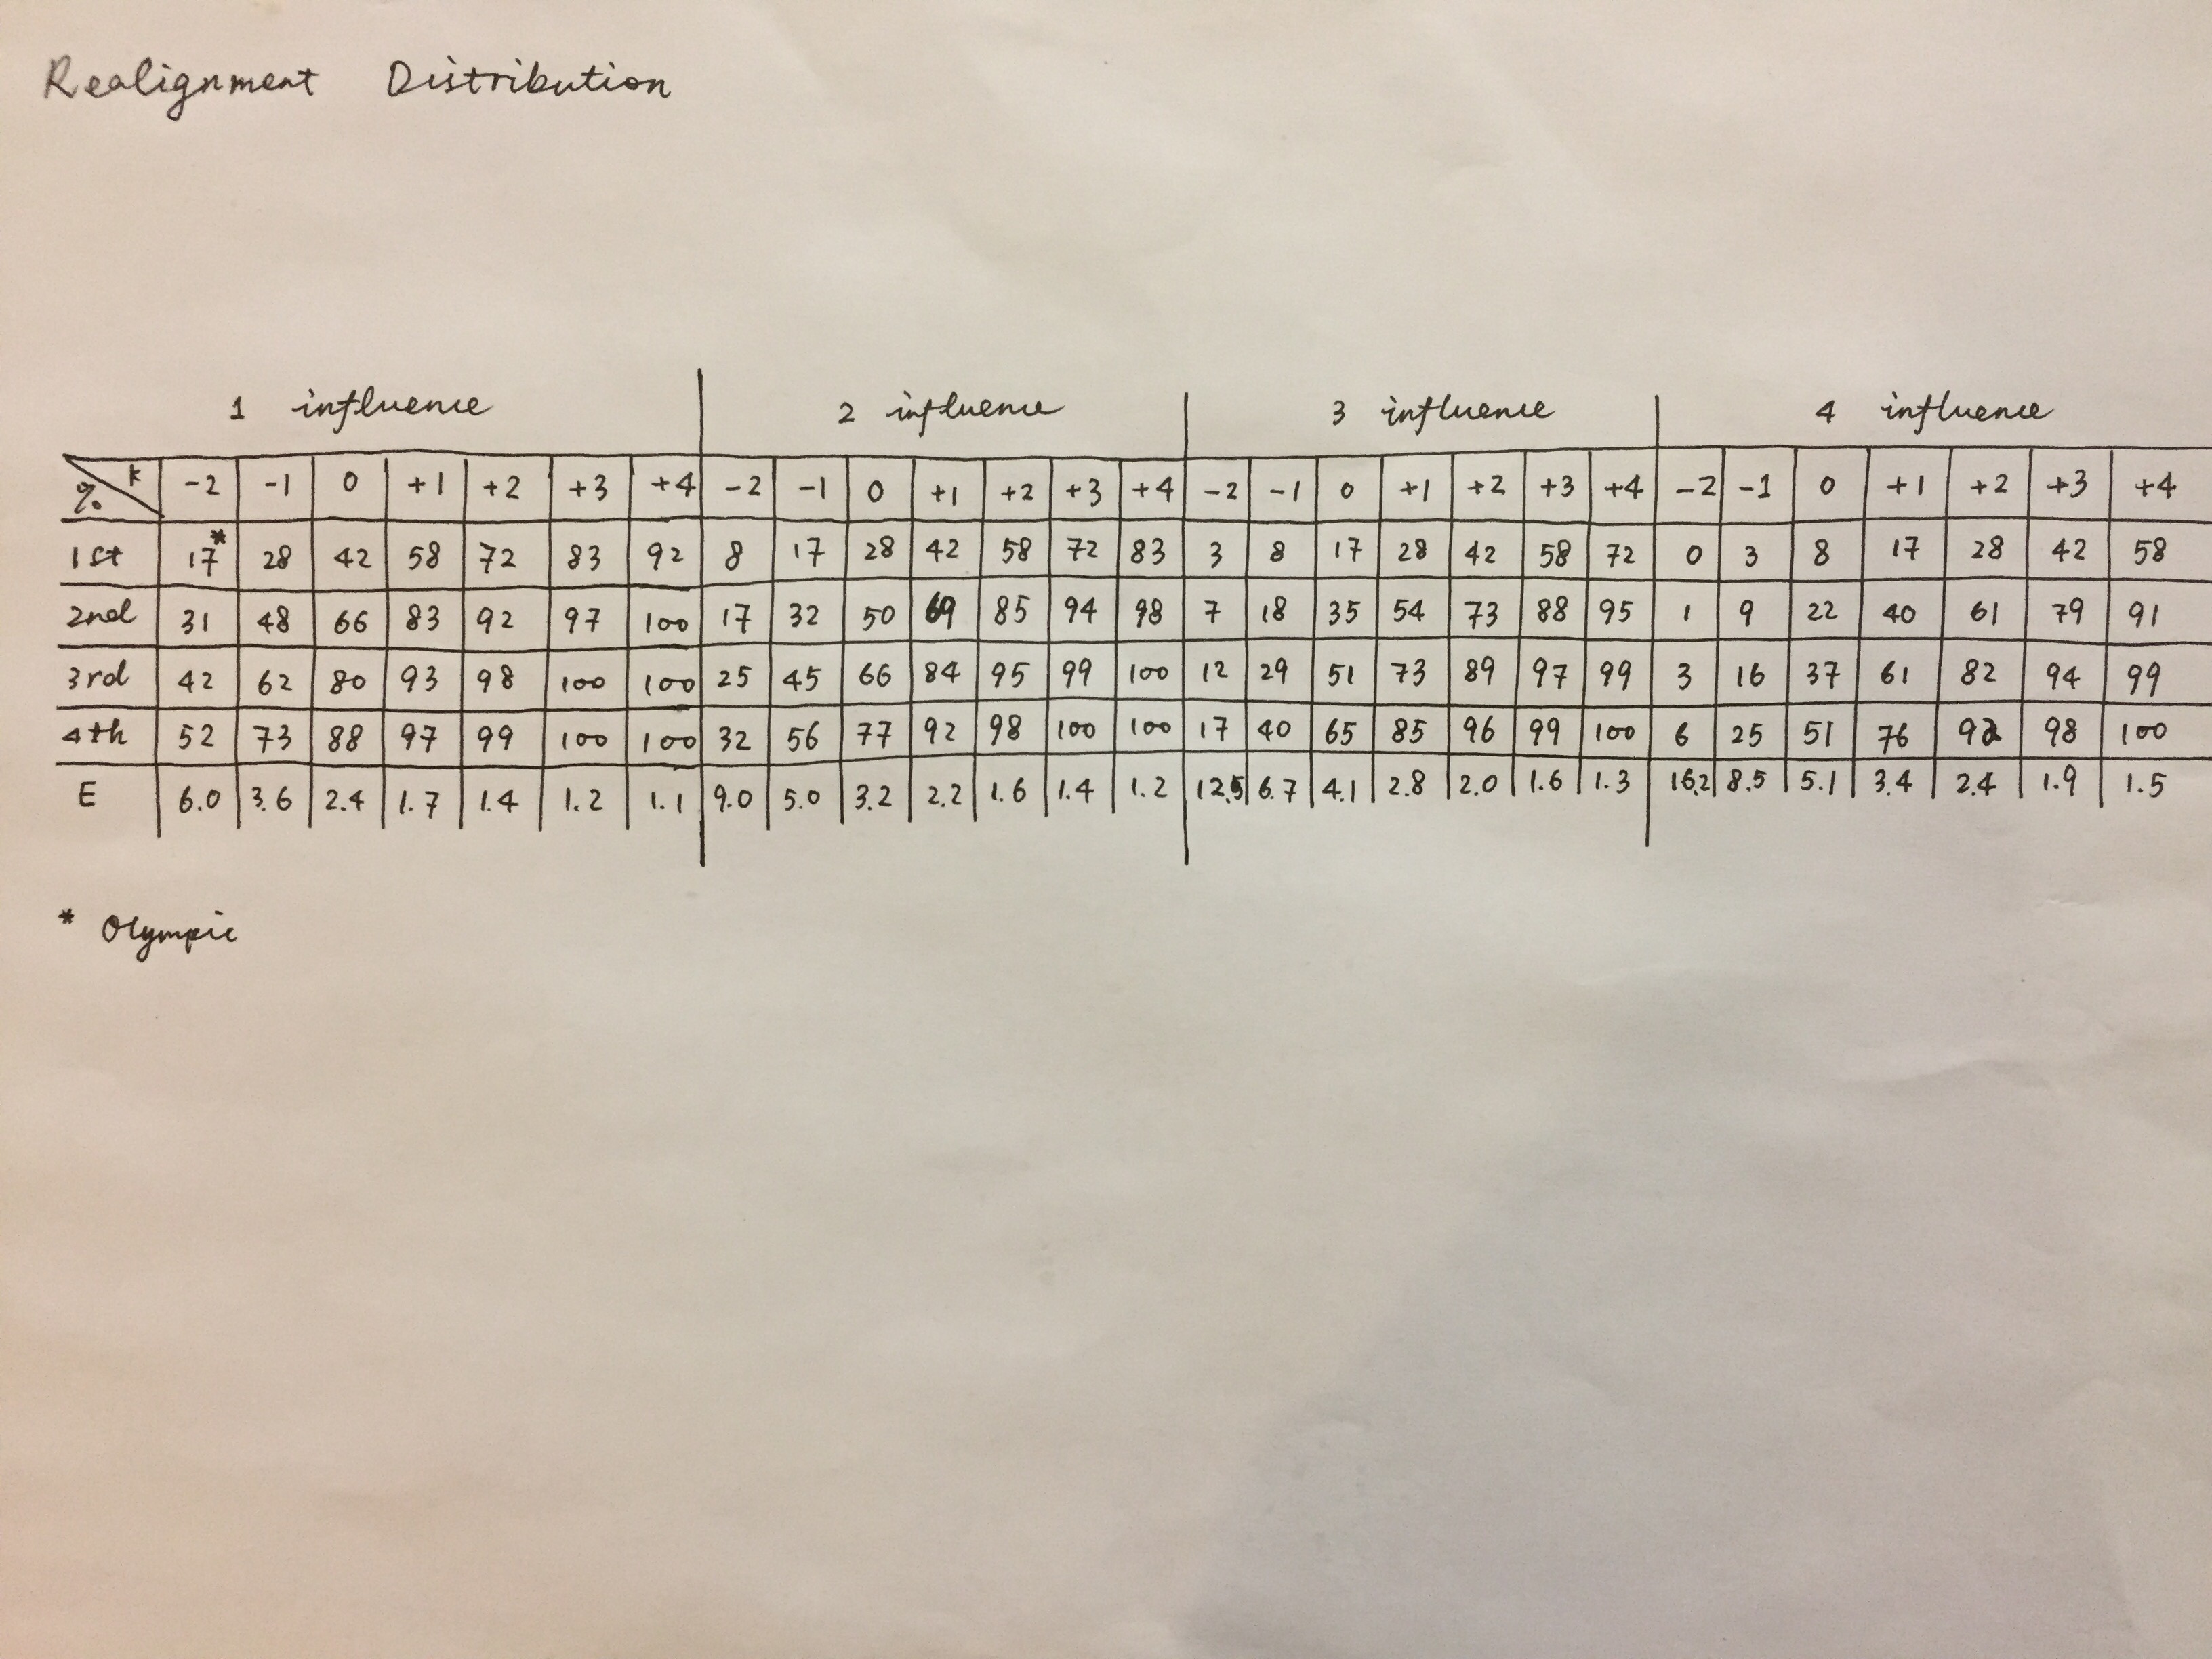 Realignment Distribution
1 influence 2 influence 3 influence 4 influence
% k -2 -1 0 +1 +2 +3 +4 -2 -1 0 +1 +2 +3 +4 -2 -1 0 +1 +2 +3 +4 -2 -1 0 +1 +2 +3 +4
1st 17* 28 42 58 72 83 92 8 17 28 42 58 72 83 3 8 17 28 42 58 72 0 3 8 17 28 42 58
2nd 31 48 66 83 92 97 100 17 32 50 69 85 94 98 7 18 35 54 73 88 95 1 9 22 40 61 79 91
3rd 42 62 80 93 98 100 100 25 45 66 84 95 99 100 12 29 51 73 89 97 99 3 16 37 61 82 94 99
4th 52 73 88 97 99 100 100 32 56 77 92 98 100 100 17 40 65 85 96 99 100 6 25 51 76 92 98 100
E 6.0 3.6 2.4 1.7 1.4 1.2 1.1 9.0 5.0 3.2 2.2 1.6 1.4 1.2 12.5 6.7 4.1 2.8 2.0 1.6 1.3 16.2 8.5 5.1 3.4 2.4 1.9 1.5
* Olympic